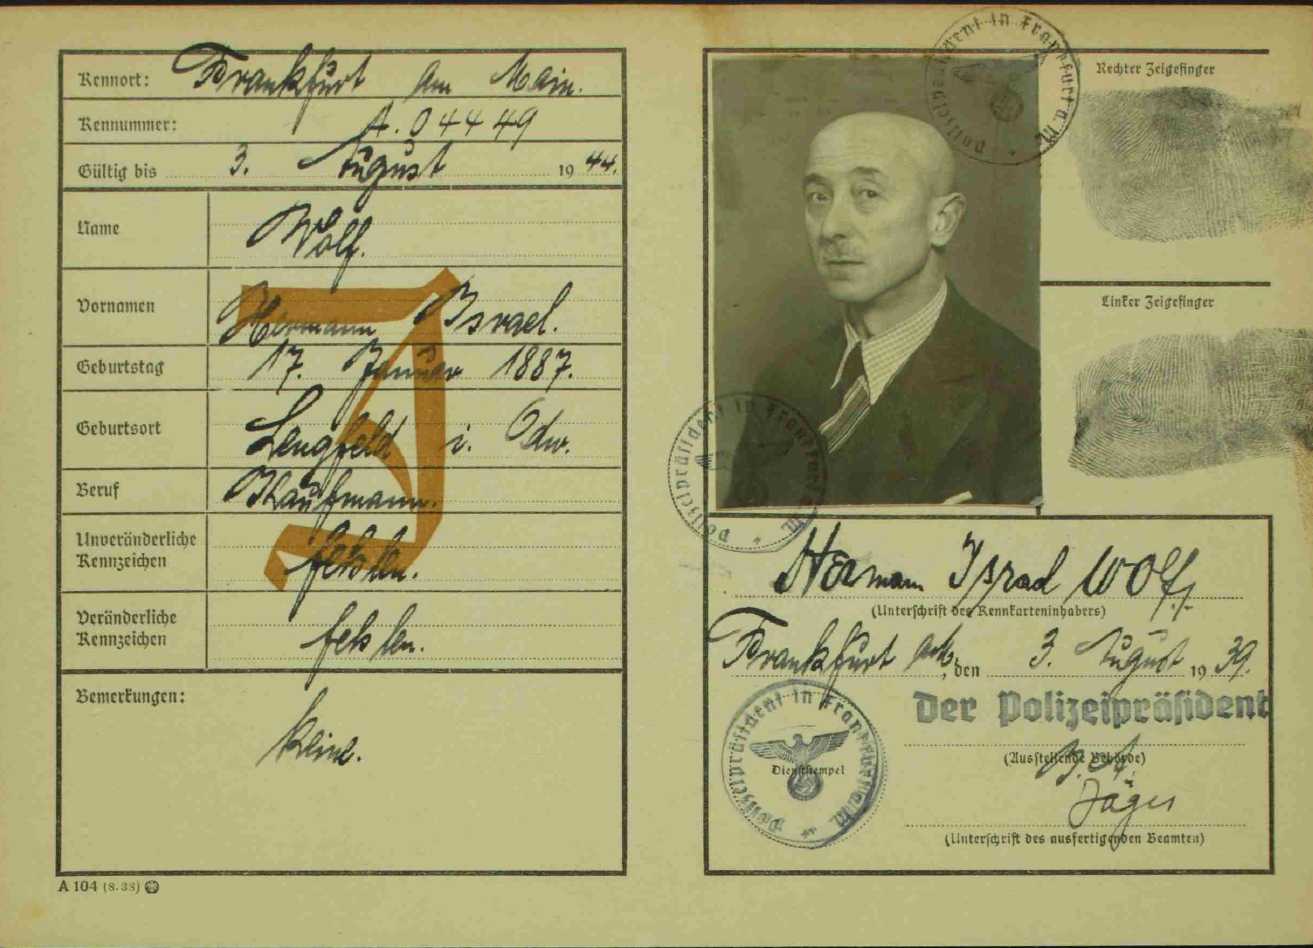 Kennort: Frankfurt am Main.
Kennummer: A. 04449
Gültig bis 3. August 1944.
Name Wolf.
Vornamen Hermann Israel.
Geburtstag 17. Januar 1887.
Geburtsort Lengfeld i. Odw.
Beruf Kaufmann.
Unveränderliche
Kennzeichen fehlen.
Veränderliche
Kennzeichen fehlen.
Bemerkungen:
keine.
J
A 104 (8.38)
Polizeipräsident in Frankfurt a.M.
Rechter Zeigefinger
Linker Zeigefinger
Polizeipräsident in Frankfurt a.M.
Hermann Israel Wolf
(Unterschrift des Kennkarteninhabers)
Frankfurt a.M., den 3. August 1939.
Der Polizeipräsident
(Ausstellende Behörde)
Polizeipräsident in Frankfurt a.M.
Dienststempel
J.A.
Jäger
(Unterschrift des ausfertigenden Beamten)